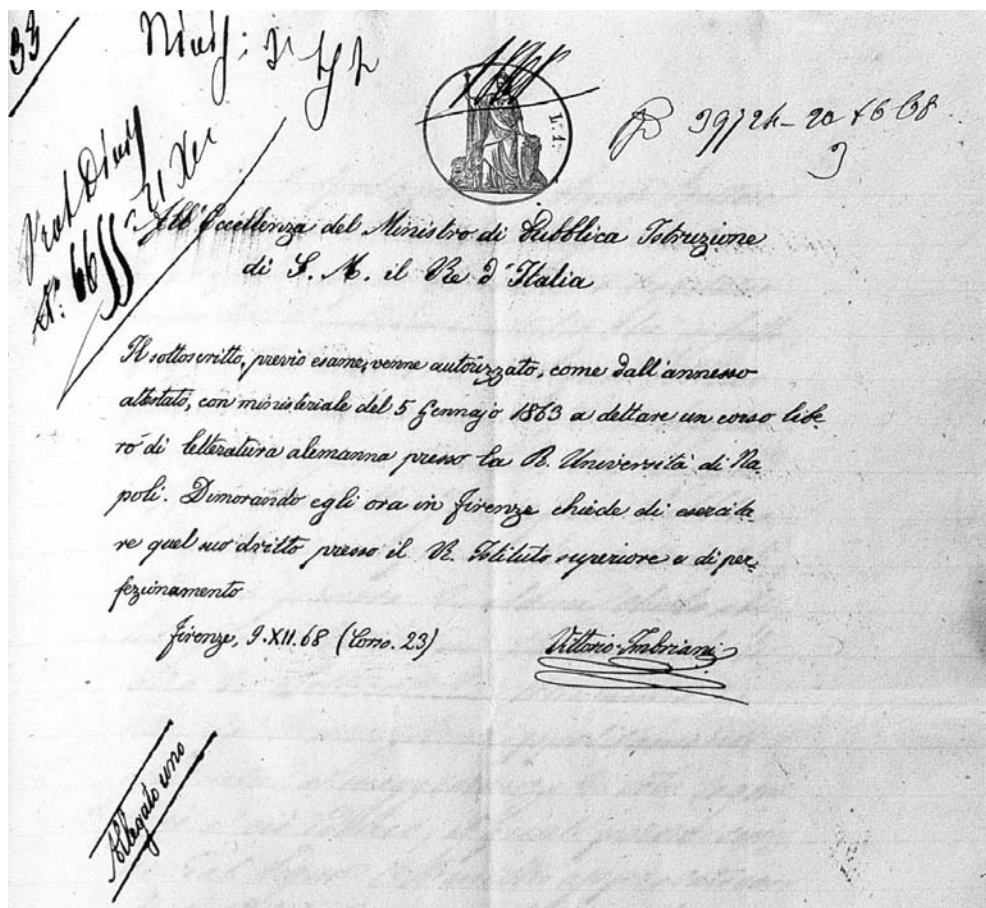 33
L. 1.
39724 - 20
All'Eccellenza del Ministro di Pubblica Istruzione
di S. M. il Re d'Italia
Il sottoscritto, previo esame, venne autorizzato, come dall'annesso
attestato, con ministeriale del 5 Gennajo 1863 a dettare un corso libe-
ro di letteratura alemanna presso la R. Università di Na
poli. Dimorando egli ora in Firenze chiede di esercita-
re quel suo dritto presso il R. Istituto superiore e di per-
fezionamento
Firenze, 9.XII.68 (Corso. 23)
Vittorio Imbriani
Allegato uno